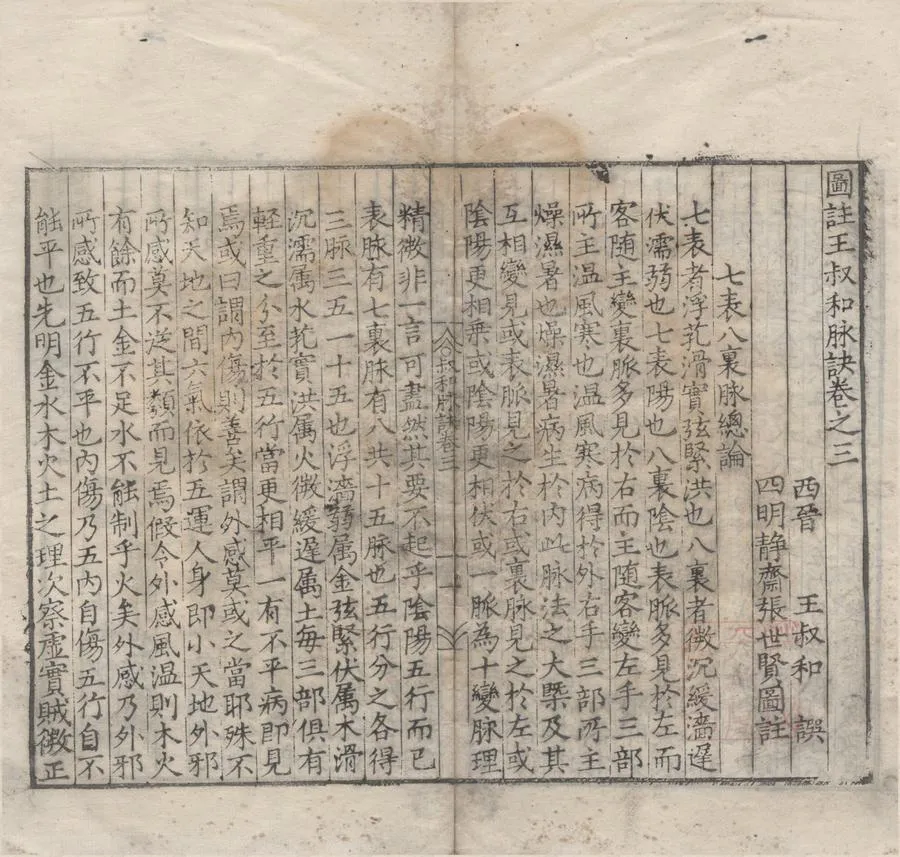 圖註王叔和脉訣卷之三
西晉 王叔和 譔
四明静齋張世賢圖註
七表八裏脉總論
七表者浮芤滑實弦緊洪也八裏者微沉緩濇遲
伏濡弱也七表陽也八裏陰也表脈多見於左而
客随主變裏脈多見於右而主随客變左手三部
所主温風寒也温風寒病得於外右手三部所主
燥濕暑也燥濕暑病生於内此脈法之大槩及其
互相變見或表脈見之於右或裏脉見之於左或
陰陽更相乘或陰陽更相伏或一脈為十變脉理
叔和脉訣卷三
一
精微非一言可盡然其要不起乎陰陽五行而已
表脉有七裏脉有八共十五脉也五行分之各得
三脉三五一十五也浮濇弱属金弦緊伏属木滑
沉濡属水芤實洪属火微緩遲属土每三部俱有
輕重之分至於五行當更相平一有不平病即見
焉或曰謂内傷則善矣謂外感莫或之當耶殊不
知天地之間六氣依於五運人身即小天地外邪
所感莫不從其類而見焉假令外感風温則木火
有餘而土金不足水不能制乎火矣外感乃外邪
所感致五行不平也内傷乃五内自傷五行自不
能平也先明金水木火土之理次察虚實賊微正